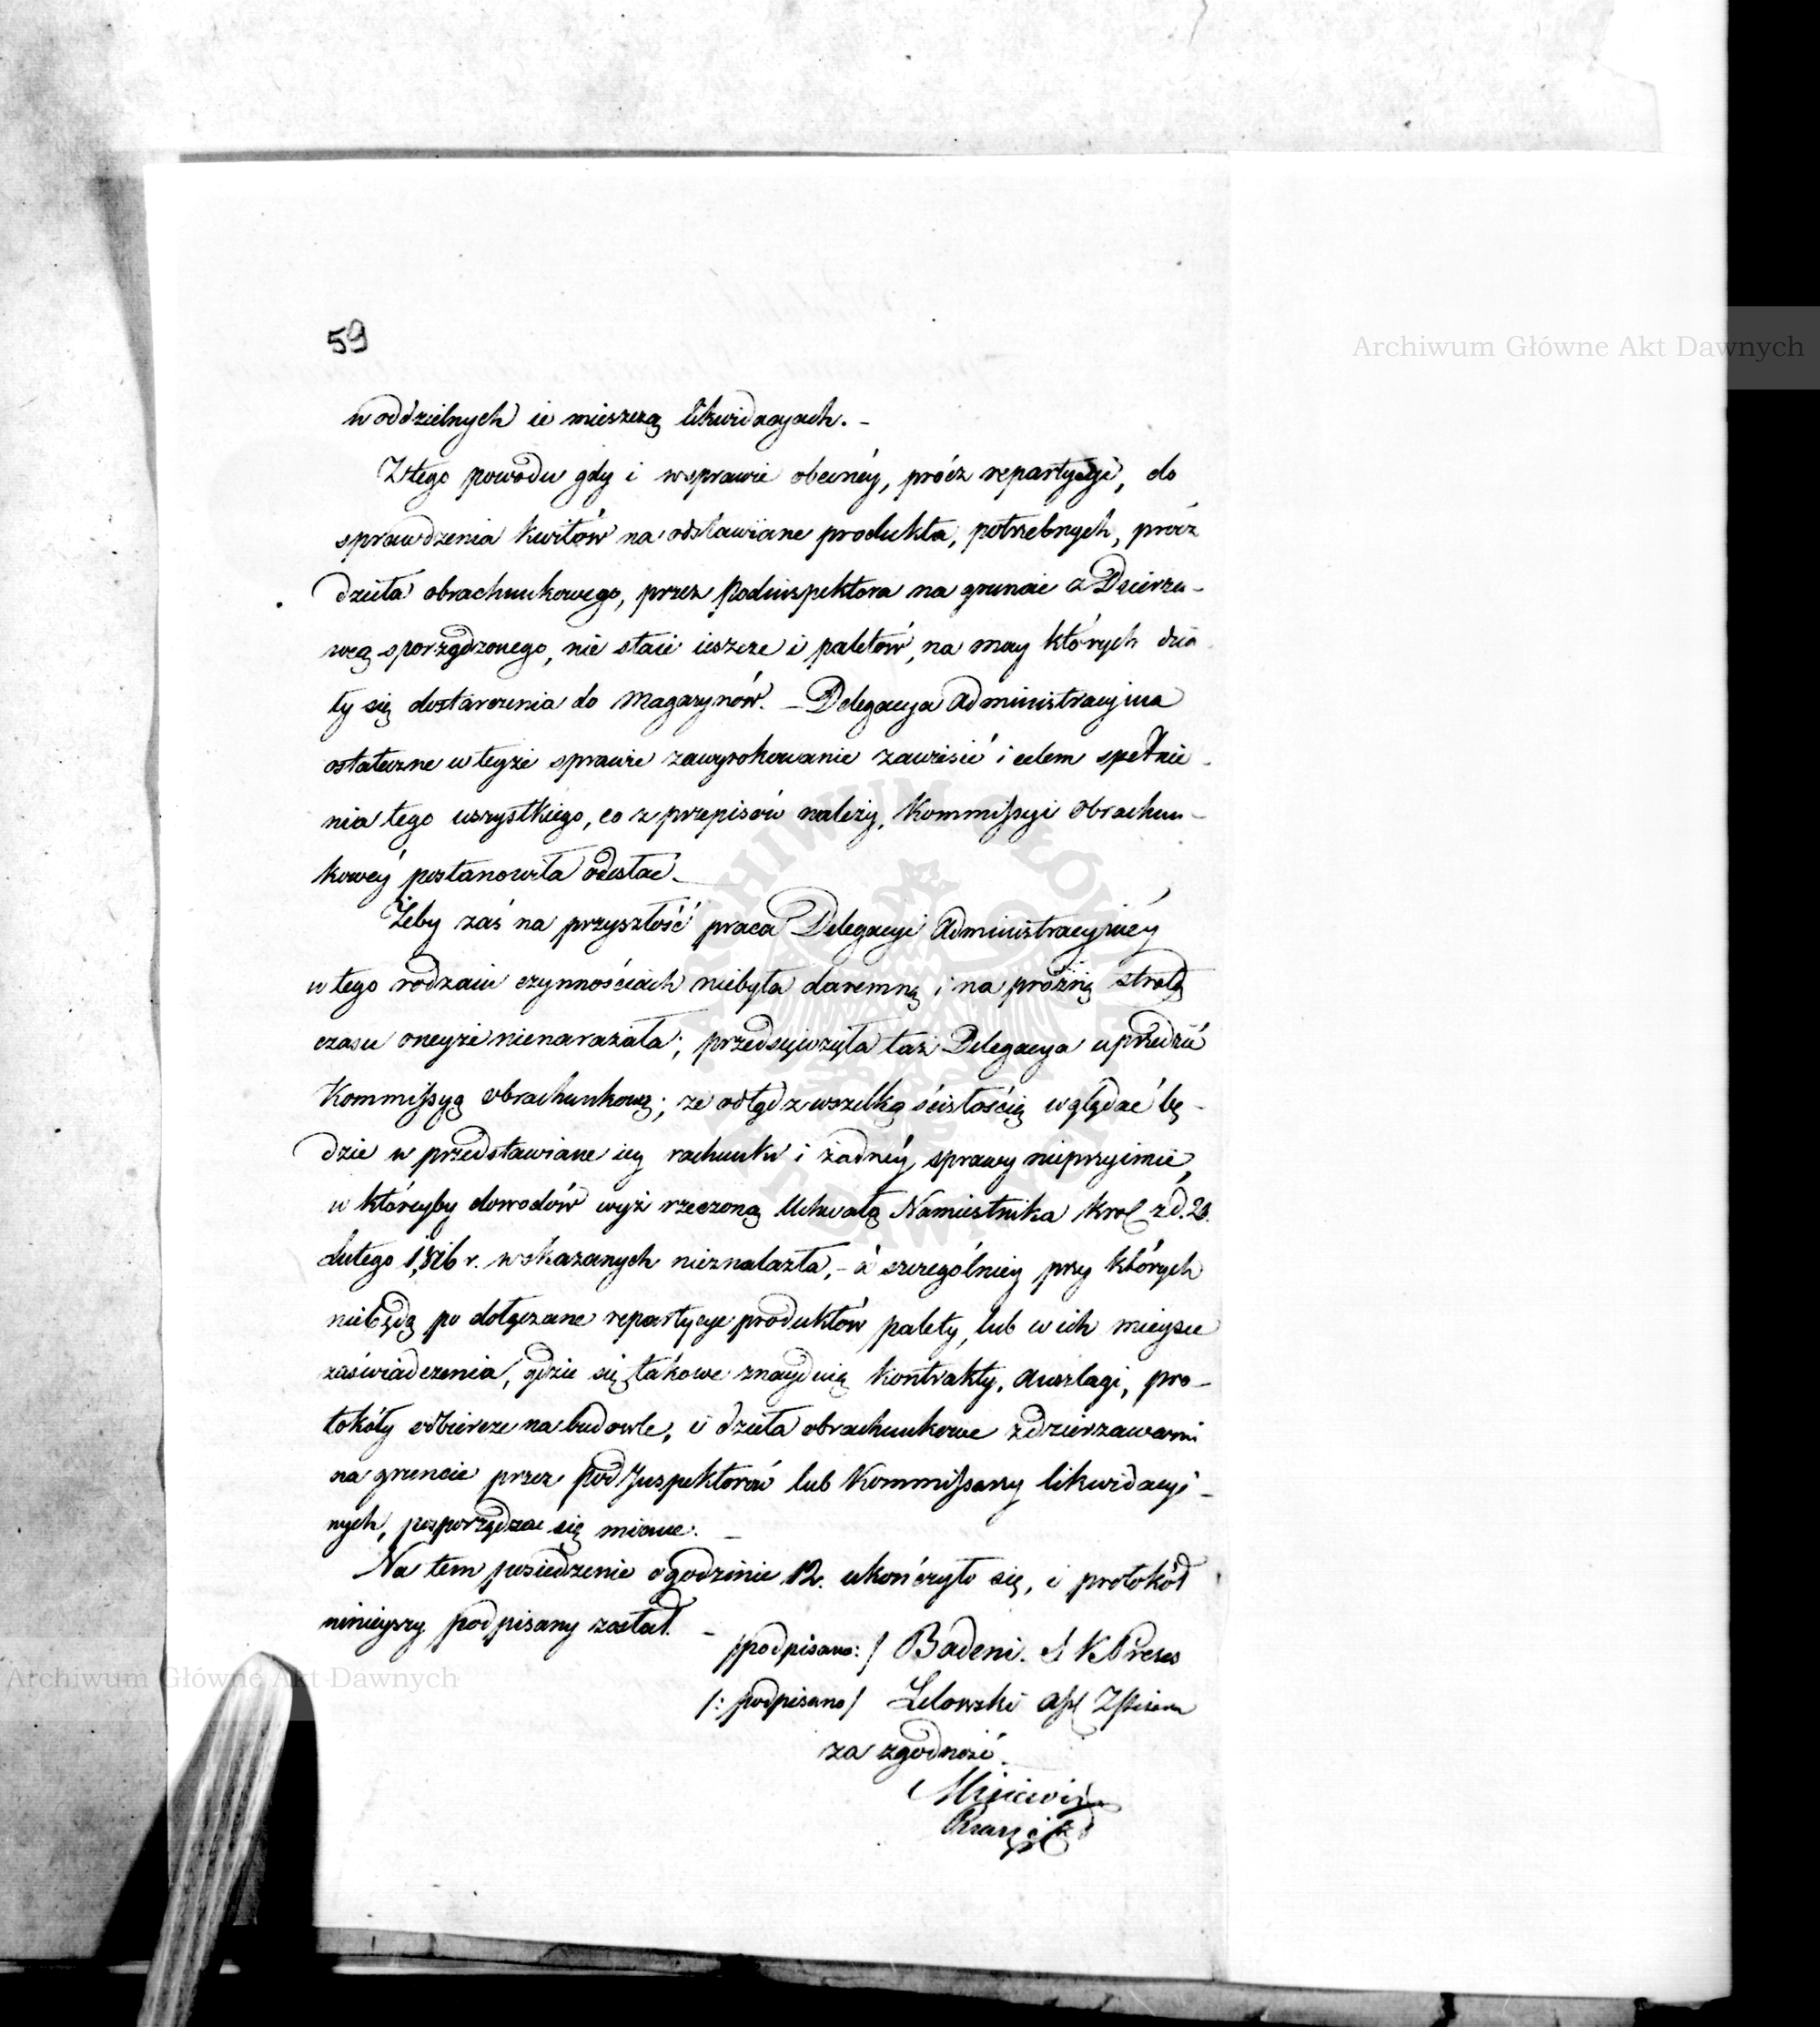 59
w oddzielnych ie mieszczą likwidacyach. –
Z tego powodu gdy i w sprawie obecnéy, prócz repartycyi, do
sprawdzenia kwitów na odstawiane produkta, potrzebnych, prócz
dzieła obrachunkowego, przez Podinspektora na gruncie z Dzierża-
wcą sporządzonego, nie staie ieszcze i paletów, na mocy których dzia
ły się dostarczenia do Magazynów. – Delegacya Administracyina
ostateczne w teyże sprawie zawyrokowanie zawiesić i celem spełnie-
nia tego wszystkiego, co z przepisów należy, Kommissyi Obrachun-
kowéy postanowiła odesłać. –
Żeby zaś na przyszłość praca Delegacyi Administracyinéy
w tego rodzaiu czynnościach niebyła daremną i na próżną stratę
czasu oneyże nienarażała; przedsięwzięła taż Delegacya uprzedzić
Kommissyą obrachunkową; że odtąd z wszelką ścisłością wglądać bę-
dzie w przedstawiane iey rachunki i żadnéy sprawy nieprzyimie,
w któreyby dowodów wyż rzeczoną Uchwałą Namiestnika Krol z d. 20.
Lutego 1816 r. wskazanych nieznalazła, – a szczególniey przy których
niebędą po dołączane repartycye produktów palety, lub w ich mieysce
zaświadczenia, gdzie się takowe znayduią kontrakty, Anszlagi, pro-
tokóły odbiorcze na budowle, i dzieła obrachunkowe z dzierżawami
na gruncie przez pod Inspektorów lub Kommissarzy likwidacyi-
nych, posporządzać się miane. –
Na tem posiedzenie o godzinie 12. ukończyło się, i protokół
ninieyszy podpisany został. –
/podpisano:/ Badeni. R S Prezes
/:podpisano/ Lelowski
za zgodność.
Archiwum Główne Akt Dawnych
Archiwum Główne Akt Dawnych
ARCHIWUM GŁÓWNE AKT DAWNYCH